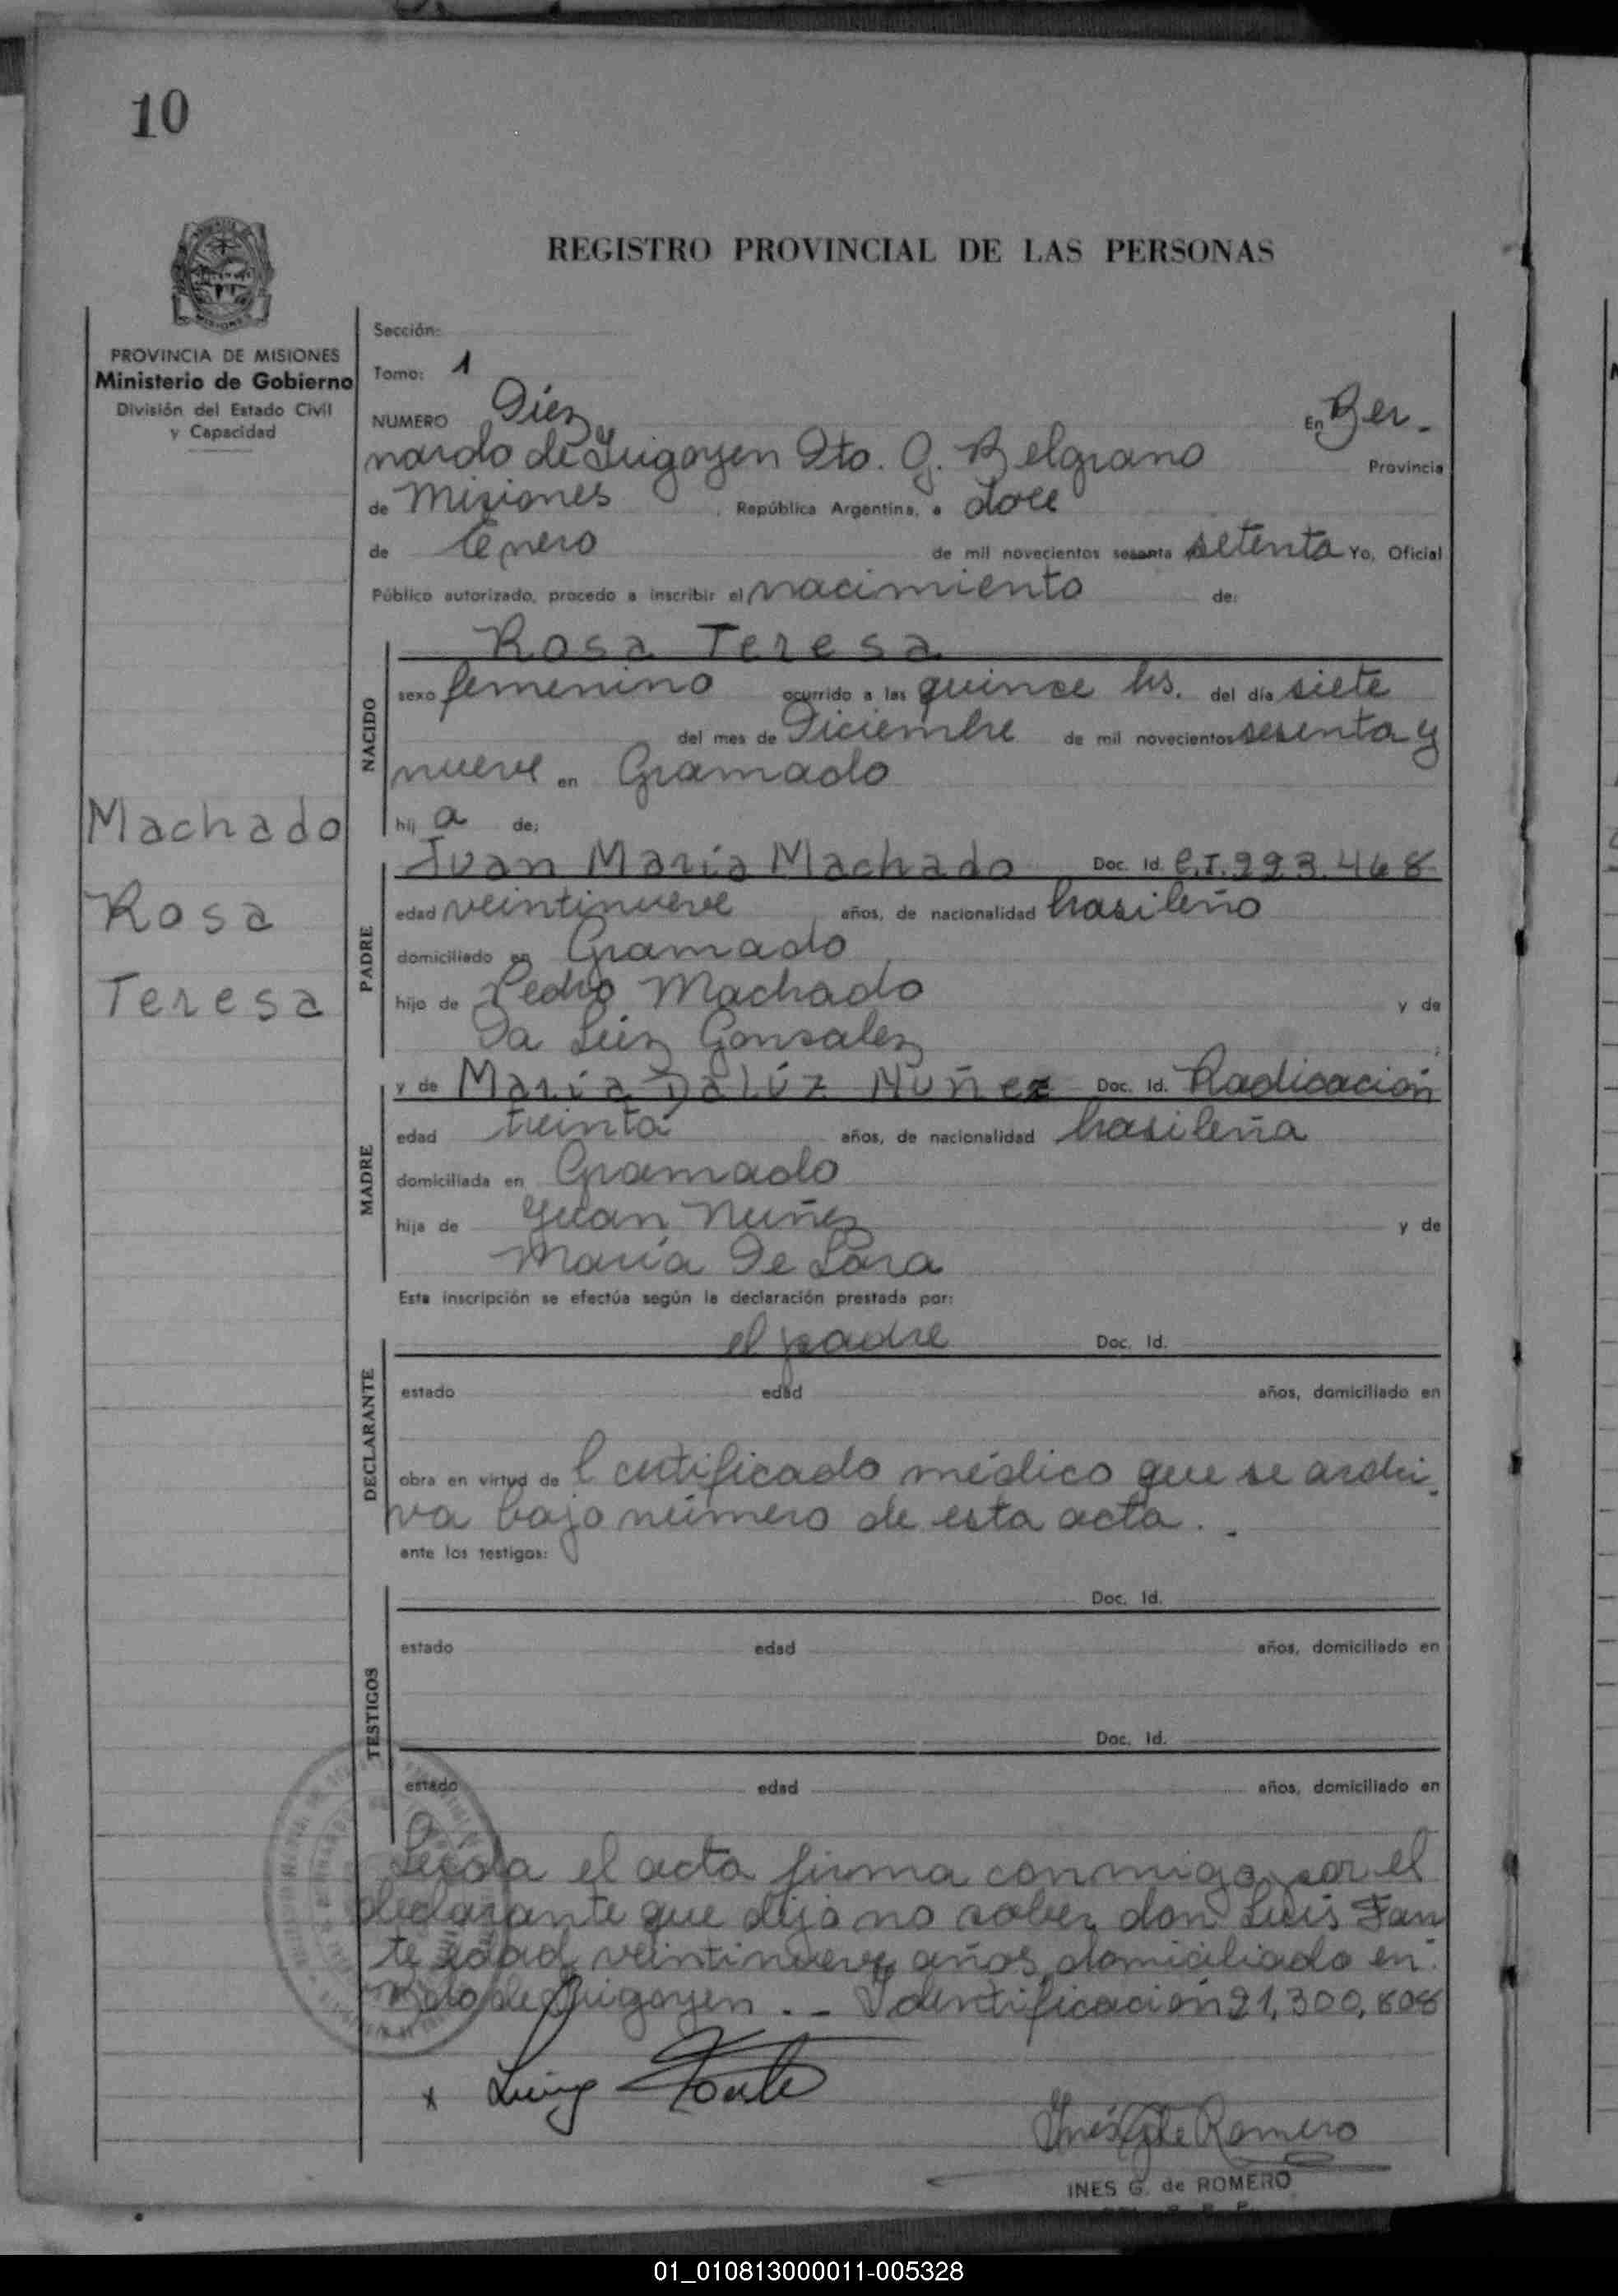 10
REGISTRO PROVINCIAL DE LAS PERSONAS
MISIONES
PROVINCIA DE MISIONES
Ministerio de Gobierno
División del Estado Civil
y Capacidad
Sección:
Tomo: 1
NUMERO Diez En Ber-
nardo de Irigoyen Dto. G. Belgrano Provincia
de Misiones , República Argentina, a doce
de Enero de mil novecientos sesenta setenta Yo, Oficial
Público autorizado, procedo a inscribir el nacimiento de:
Rosa Teresa
NACIDO
sexo femenino ocurrido a las quince hs. del día siete
del mes de Diciembre de mil novecientos sesenta y
nueve en Gramado
hij a de:
Machado
Rosa
Teresa
PADRE
Juan María Machado Doc. Id. C.I. 223.468
edad veintinueve años, de nacionalidad brasileño
domiciliado en Gramado
hijo de Pedro Machado y de
Da Luz Gonsalez ;
MADRE
y de María Dalúz Nuñez Doc. Id. Radicación
edad treinta años, de nacionalidad brasileña
domiciliada en Gramado
hija de Juan Nuñez y de
María De Lara
Esta inscripción se efectúa según la declaración prestada por:
DECLARANTE
el padre Doc. Id.
estado edad años, domiciliado en
obra en virtud de l certificado médico que se archi-
va bajo número de esta acta . -
ante los testigos:
TESTIGOS
Doc. Id.
estado edad años, domiciliado en
Doc. Id.
estado edad años, domiciliado en
Leída el acta firma conmigo por el
declarante que dijo no saber don Luis Fan
te edad veintinueve años domiciliado en
Bdo de Irigoyen . - Identificación 21,300,808
x Luis Fante
Inés G de Romero
INES G. de ROMERO
01_010813000011-005328